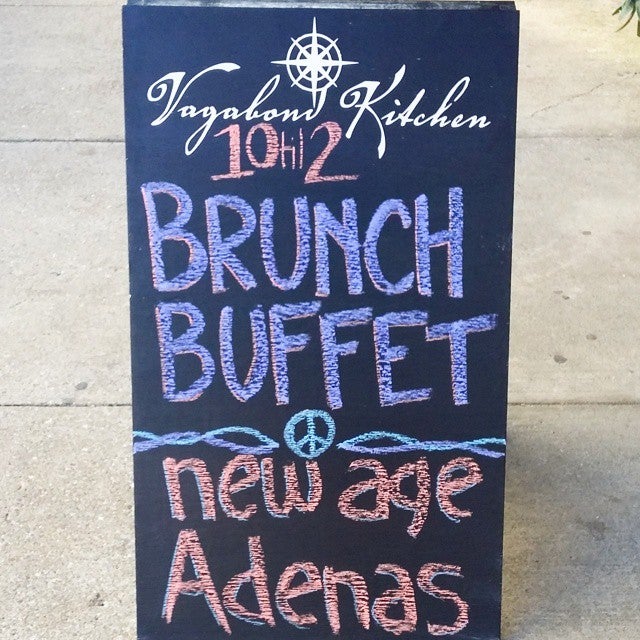 Vagabond Kitchen
10 til 2
BRUNCH
BUFFET
new age
Adenas